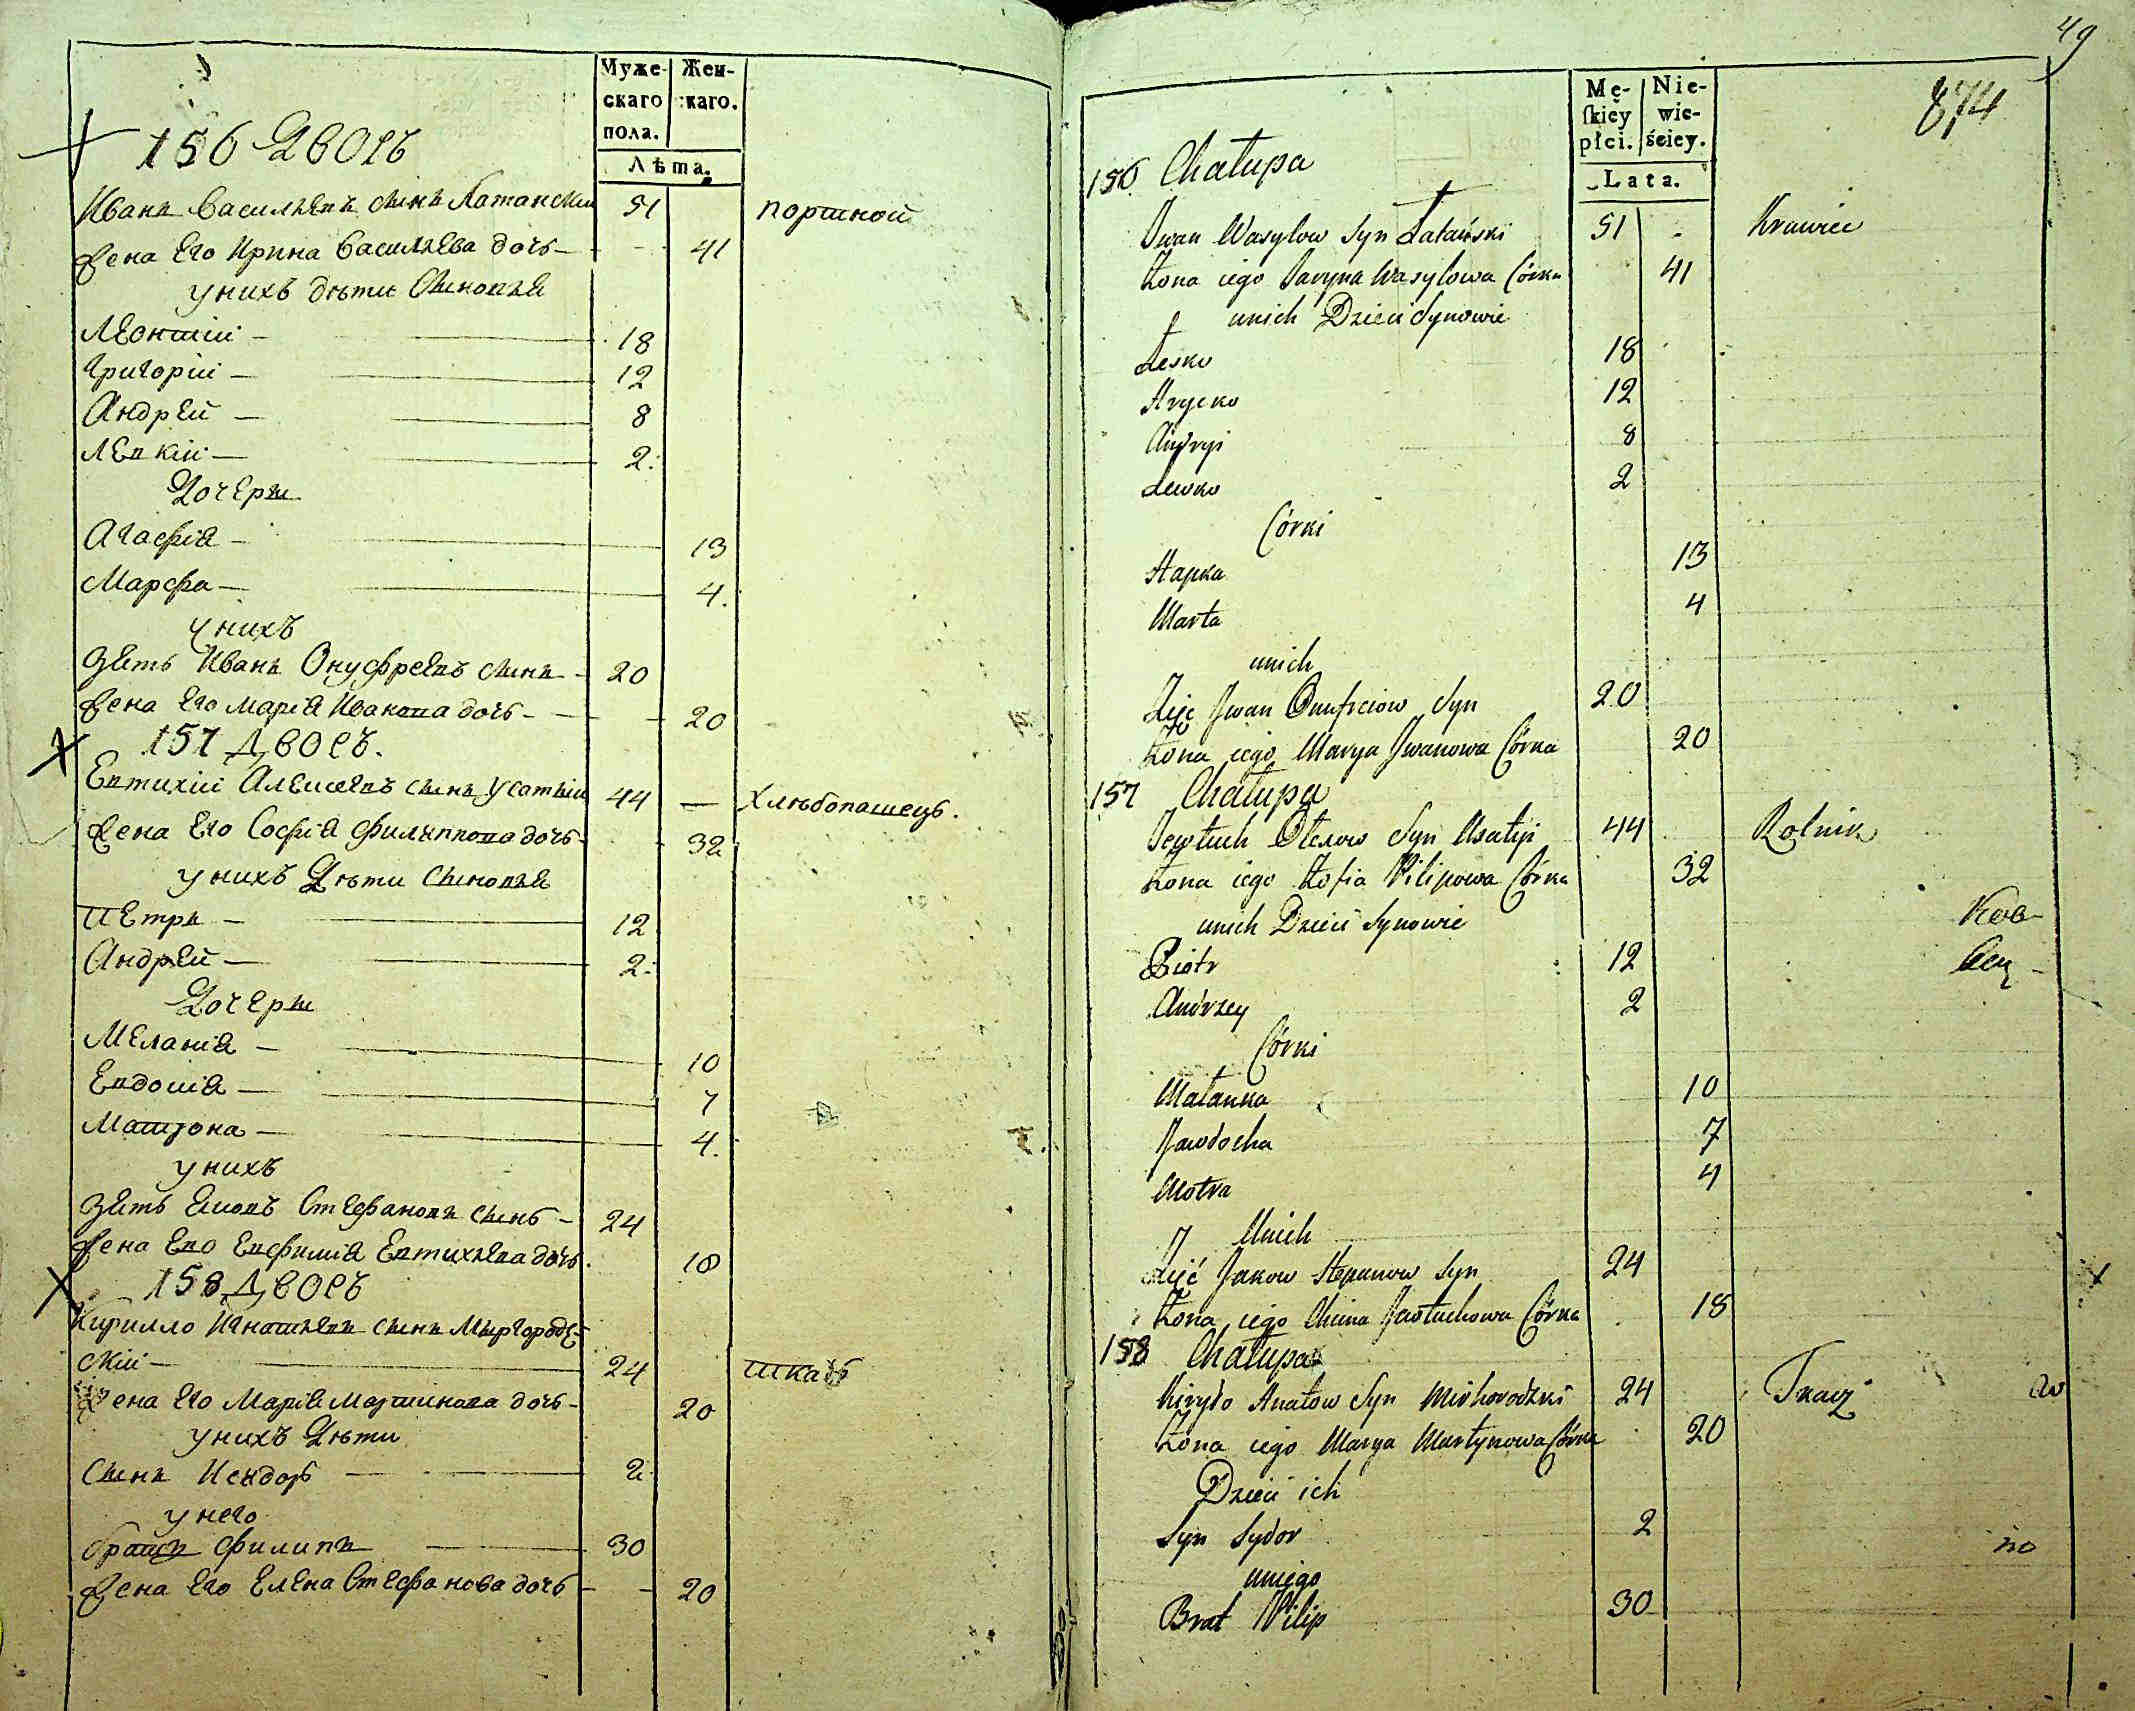 Муже- Жен-
скаго скаго.
пола.
Лѣта.
156 Дворъ
Иванъ Васильевъ сынъ Латанскии 51 портной
Жена Его Ирина Васильева дочь 41
у нихъ дѣти Сыновья
Леонтій 18
Григорій 12
Андрей 8
Левкій 2
Дочери
Агафія 13
Марфа 4
у нихъ
Зять Иванъ Онуфреевъ сынъ 20
Жена Его Марія Иванова дочь 20
157 Дворъ.
Евтихій Алексеевъ сынъ Усатый 44 — Хлѣбопашецъ.
Жена Его Софія Филиппова дочь 32
у нихъ Дѣти Сыновья
Петръ 12
Андрей 2
Дочери
Меланія 10
Евдокія 7
Матрона 4
у нихъ
Зять Стефановъ сынъ 24
Жена Его Евфимія Евтихьева дочь 18
158 Дворъ
Кирилло Игнатьевъ сынъ Миргород-
скій 24 ткачъ
Жена Его Марія Мартинова дочь 20
у нихъ Дѣти
Сынъ Исидоръ 2
у него
братъ Филипъ 30
Жена Его Елена Стефанова дочь 20
49
874
Mę- Nie-
skiey wie-
płci. ściey.
Lata.
156 Chałupa
Iwan Wasylow Syn Łatański 51 Krawiec
Żona iego Jaryna Wasylowa Córka 41
unich Dzieci Synowie
Łesko 18
Hrycko 12
Andryi 8
Lewko 2
Córki
Hapka 13
Marta 4
unich
Zięć Iwan Onufreiow Syn 20
Żona iego Marya Iwanowa Córka 20
157 Chałupa
Jewtuch Olexow Syn Usatyi 44 Rolnik
Żona iego Zofia Pilipowa Córka 32
unich Dzieci Synowie
Piotr 12
Andrzey 2
Córki
Małanka 10
Jawdocha 7
Motra 4
Unich
Zięć Jakow Stepanow Syn 24
Żona iego Chima Jawtuchowa Córka 18
158 Chałupa
Kiryło Anatow Syn Mirhorodzki 24 Tkacz
Żona iego Marya Martynowa Córka 20
Dzieci ich
Syn Sydor 2
uniego
Brat Pilip 30